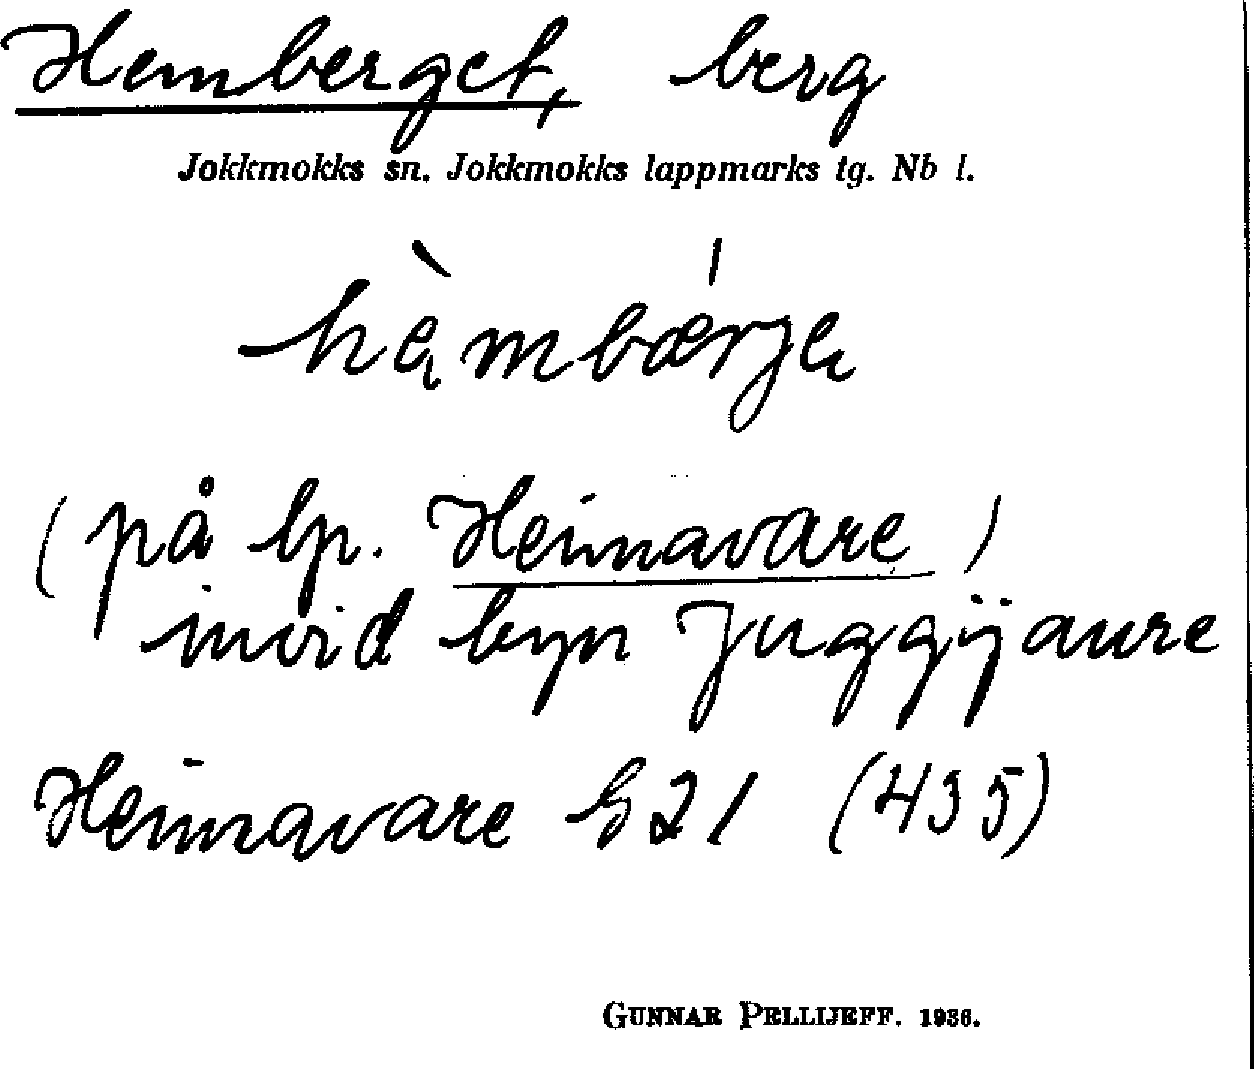 Hemberget, berg
Jokkmokks sn. Jokkmokks lappmarks tg. Nb l.
hèmbærje
(på lp. Heinnavare)
invid byn Juggijaure
Heinnavare G21 (435)
GUNNAR PELLIJEFF. 1936.